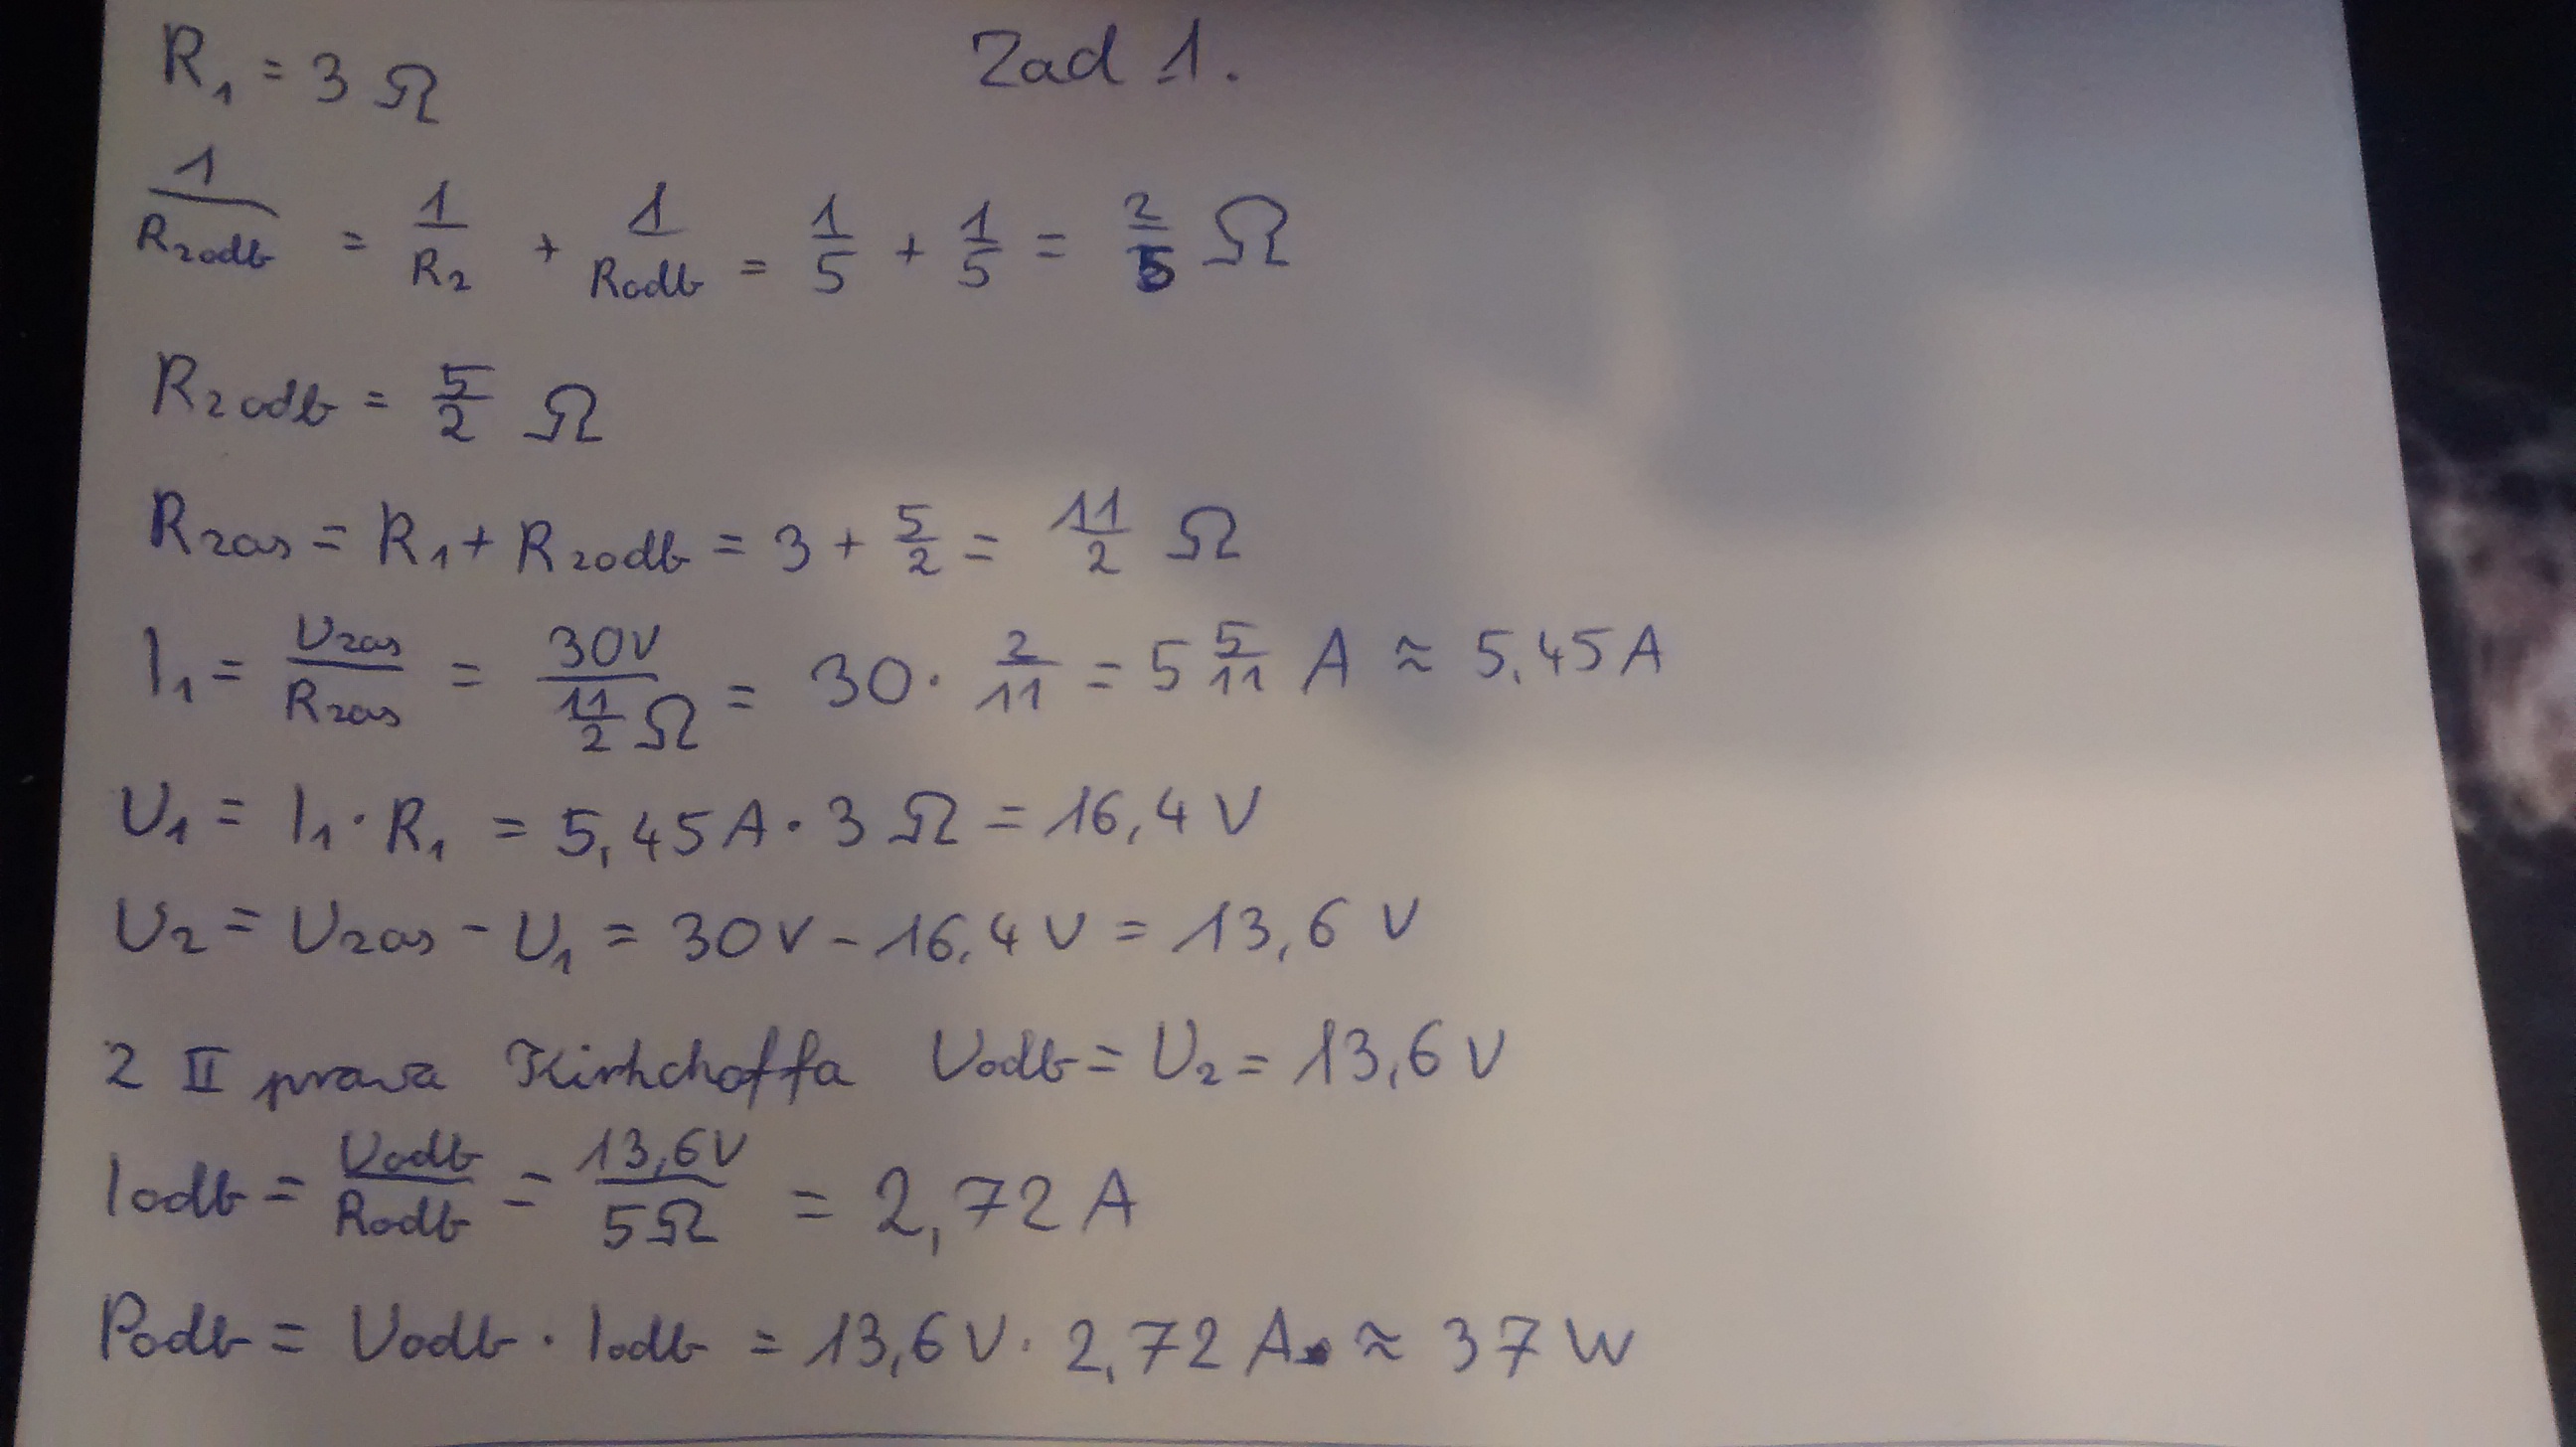 Zad 1.
R₁ = 3 Ω
1/R₂odb = 1/R₂ + 1/Rodb = 1/5 + 1/5 = 2/5 Ω
R₂odb = 5/2 Ω
Rzas = R₁ + R₂odb = 3 + 5/2 = 11/2 Ω
I₁ = Uzas/Rzas = 30V/(11/2 Ω) = 30 · 2/11 = 5 5/11 A ≈ 5,45A
U₁ = I₁ · R₁ = 5,45A · 3 Ω = 16,4 V
U₂ = Uzas - U₁ = 30V - 16,4 V = 13,6 V
Z II prawa Kirhchoffa Uodb = U₂ = 13,6 V
Iodb = Uodb/Rodb = 13,6V/5Ω = 2,72 A
Podb = Uodb · Iodb = 13,6 V · 2,72 A ≈ 37 W